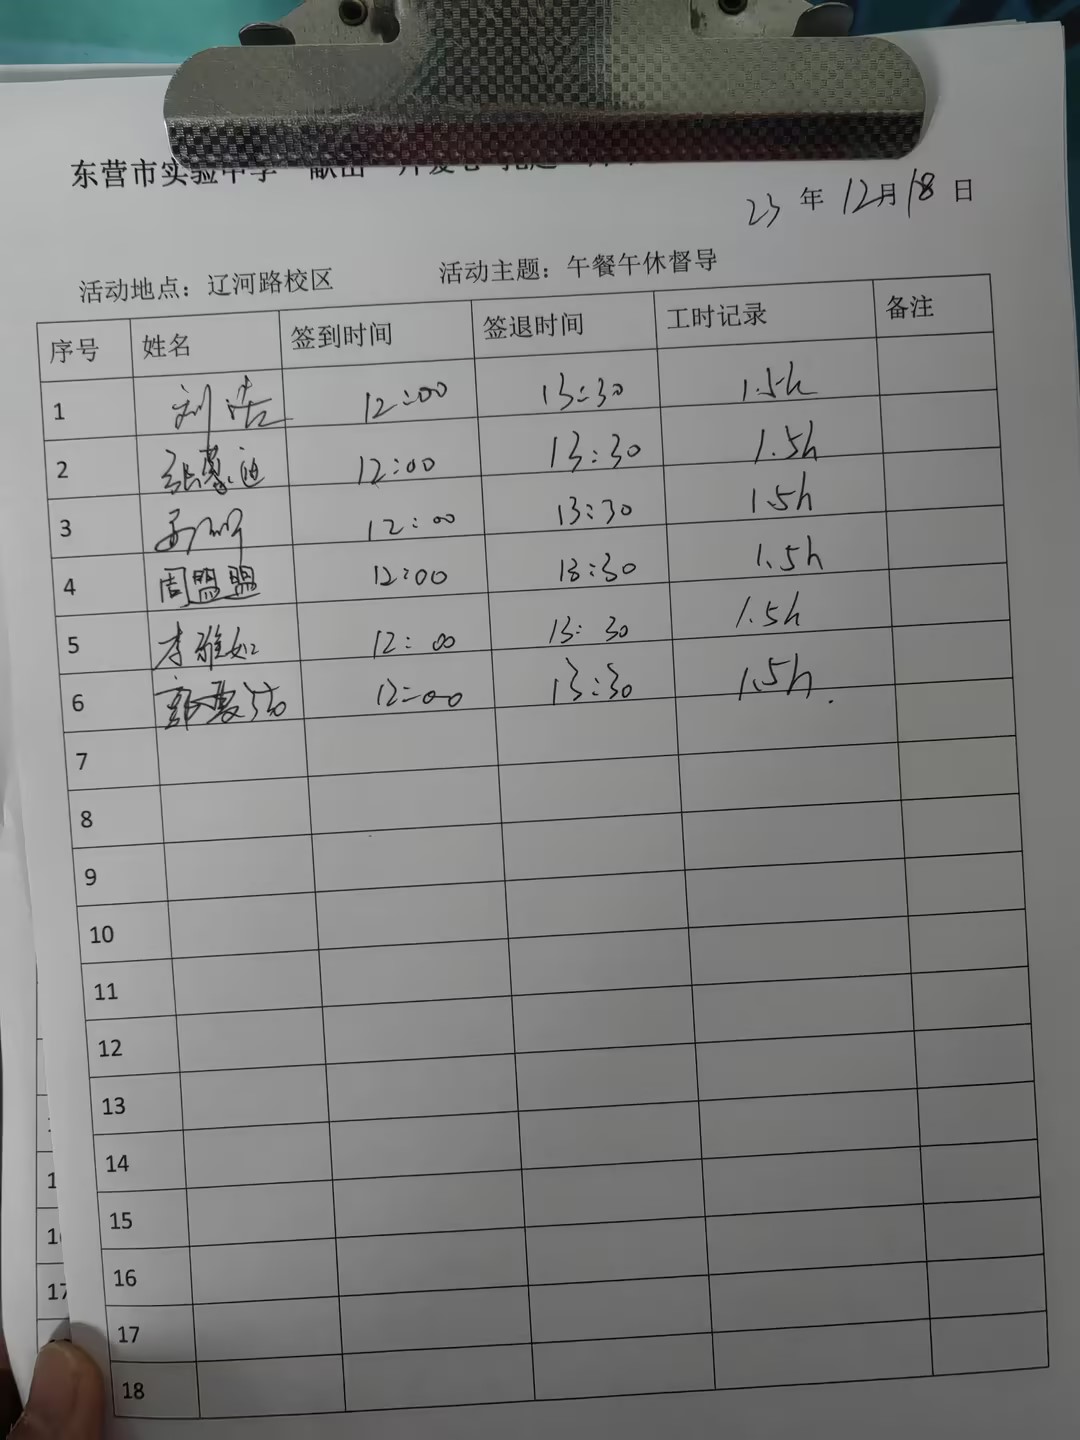 东营市实验中学
23 年 12月 18 日
活动地点：辽河路校区 活动主题：午餐午休督导
序号 姓名 签到时间 签退时间 工时记录 备注
1 刘浩 12:00 13:30 1.5h
2 张蒙迪 12:00 13:30 1.5h
3 12:00 13:30 1.5h
4 周盟盟 12:00 13:30 1.5h
5 李雅如 12:00 13:30 1.5h
6 12:00 13:30 1.5h.
7
8
9
10
11
12
13
14
15
16
17
18
1
17